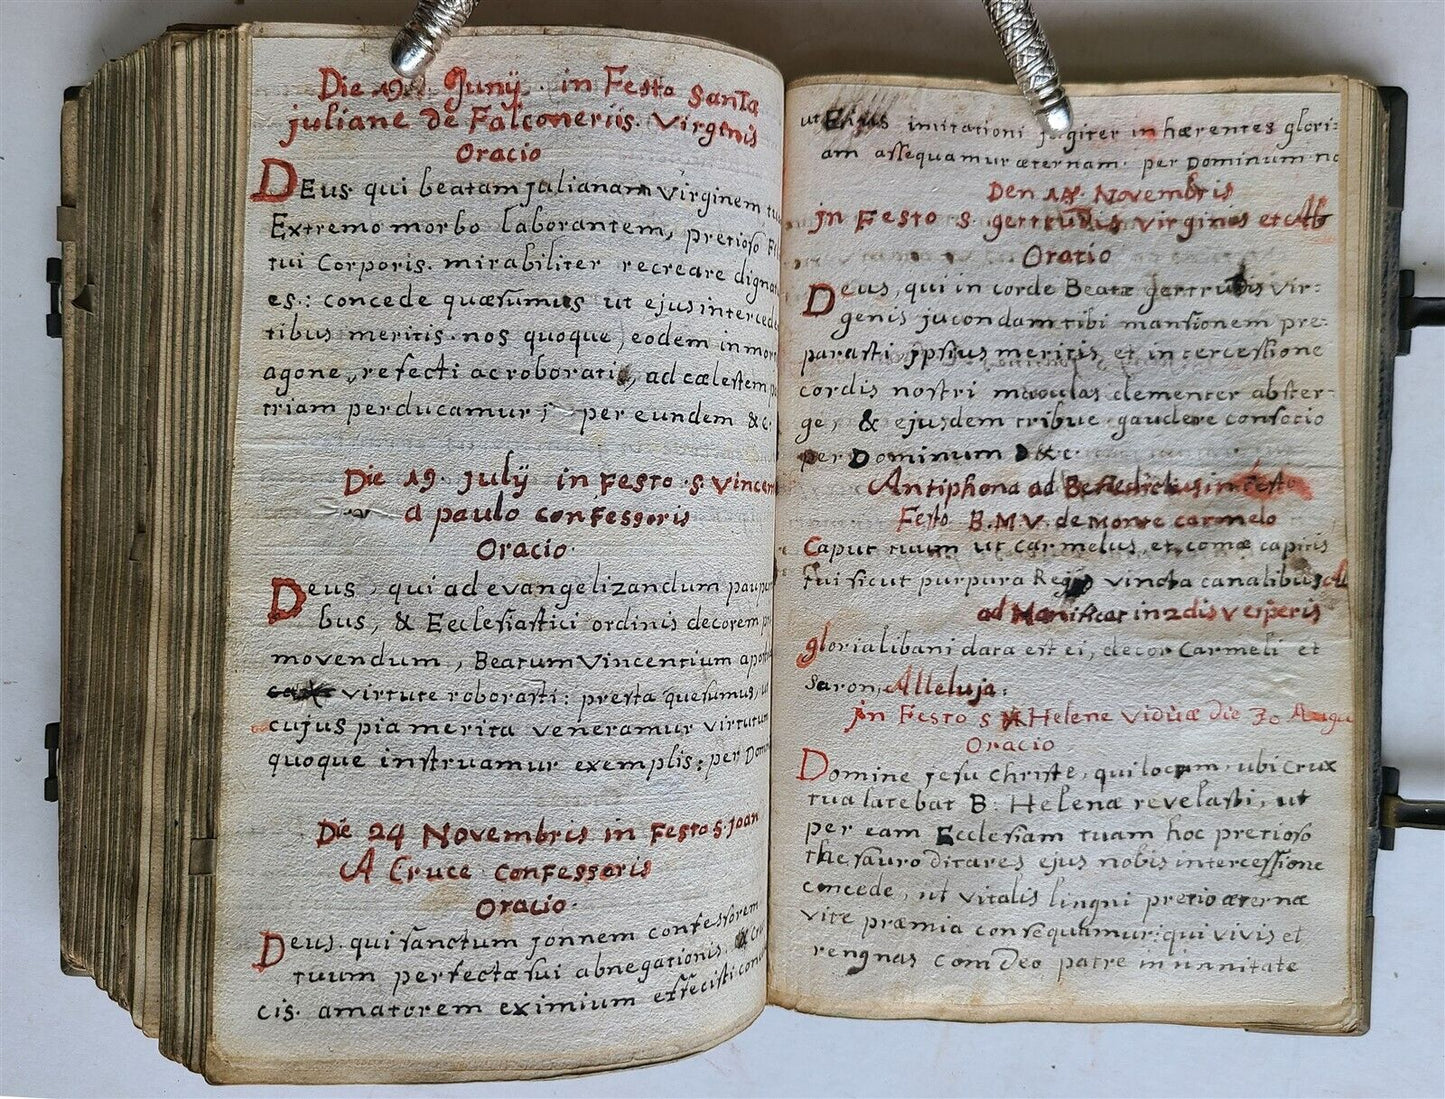 Die 19. Junÿ. in Festo Santa
juliane de Falconeriis. Virginis
Oracio
DEus qui beatam julianam Virginem
Extremo morbo laborantem, pretioso
tui Corporis. mirabiliter recreare digna
es.: concede quæsumus ut ejus interced
tibus meritis. nos quoque, eodem in mor
agone, refecti ac roborati, ad cælestem
triam perducamur; per eundem &c
Die 19. Julÿ in Festo S. Vincen
a paulo confessoris
Oracio.
Deus, qui ad evangelizandum paupe
bus, & Ecclesiastici ordinis decorem
movendum, Beatum Vincentium apo
virtute roborasti: presta quesumus, ut
cujus pia merita veneramur virtutum
quoque instruamur exemplis: per Dom
Die 24 Novembris in Festo S. Joan
A Cruce Confessoris
Oracio.
Deus. qui sanctum jonnem confessorem
tuum perfectæ sui abnegationis. & Cru
cis. amatorem eximium effecisti: con
ut Ejus imitationi jugiter in hærentes glori:
am assequamur æternam. per Dominum no
Den Novembris
jn Festo S. gertrudis virginis et Ab
Oratio
Deus, qui in corde Beatæ gertrudis Vir:
genis jucondam tibi mansionem pre:
parasti jpsius meritis, et intercessione
cordis nostri maculas clementer abster:
ge, & ejusdem tribue gaudere consocio
per Dominum &c.
Antiphona ad Benedictus in festo
Festo B.M.V. de Monte carmelo
Caput tuum ut carmelus, et comæ capitis
tui sicut purpura Regis vincta canalibus
ad Manificat in 2dis vesperis
gloria libani data est ei, decor Carmeli et
Saron, Alleluja:
jn Festo S Helene Viduæ die Augu
Oracio
Domine jesu christe, qui locum, ubi crux
tua latebat B: Helenæ revelasti, ut
per eam Ecclesiam tuam hoc pretioso
thesauro ditares ejus nobis intercessione
concede, ut vitalis lingni pretio æternæ
vite præmia consequamur: qui vivis et
rengnas com Deo patre in unnitate